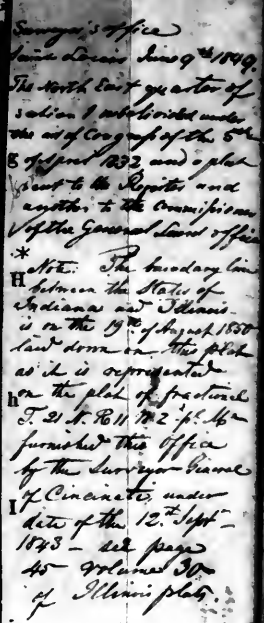 Surveyor's office
Saint Louis June 9th 1849.
The North East quarter of
section 1 subdivided under
the act of Congress of the 5th
g of April 1832 and a plat
sent to the Register and
another to the Commissioner
of the General Land office
*
H Note. The boundary line
between the States of
Indiana and Illinois
is on the 19th of August 1850
laid down on this plat
as it is represented
h on the plat of fractional
T. 21 N. R 11 W. 2d p. Mn
furnished this office
by the Surveyor General
I of Cincinati, under
date of the 12th Sept
1843 - see page
45 volume 30
of Illinois plats.